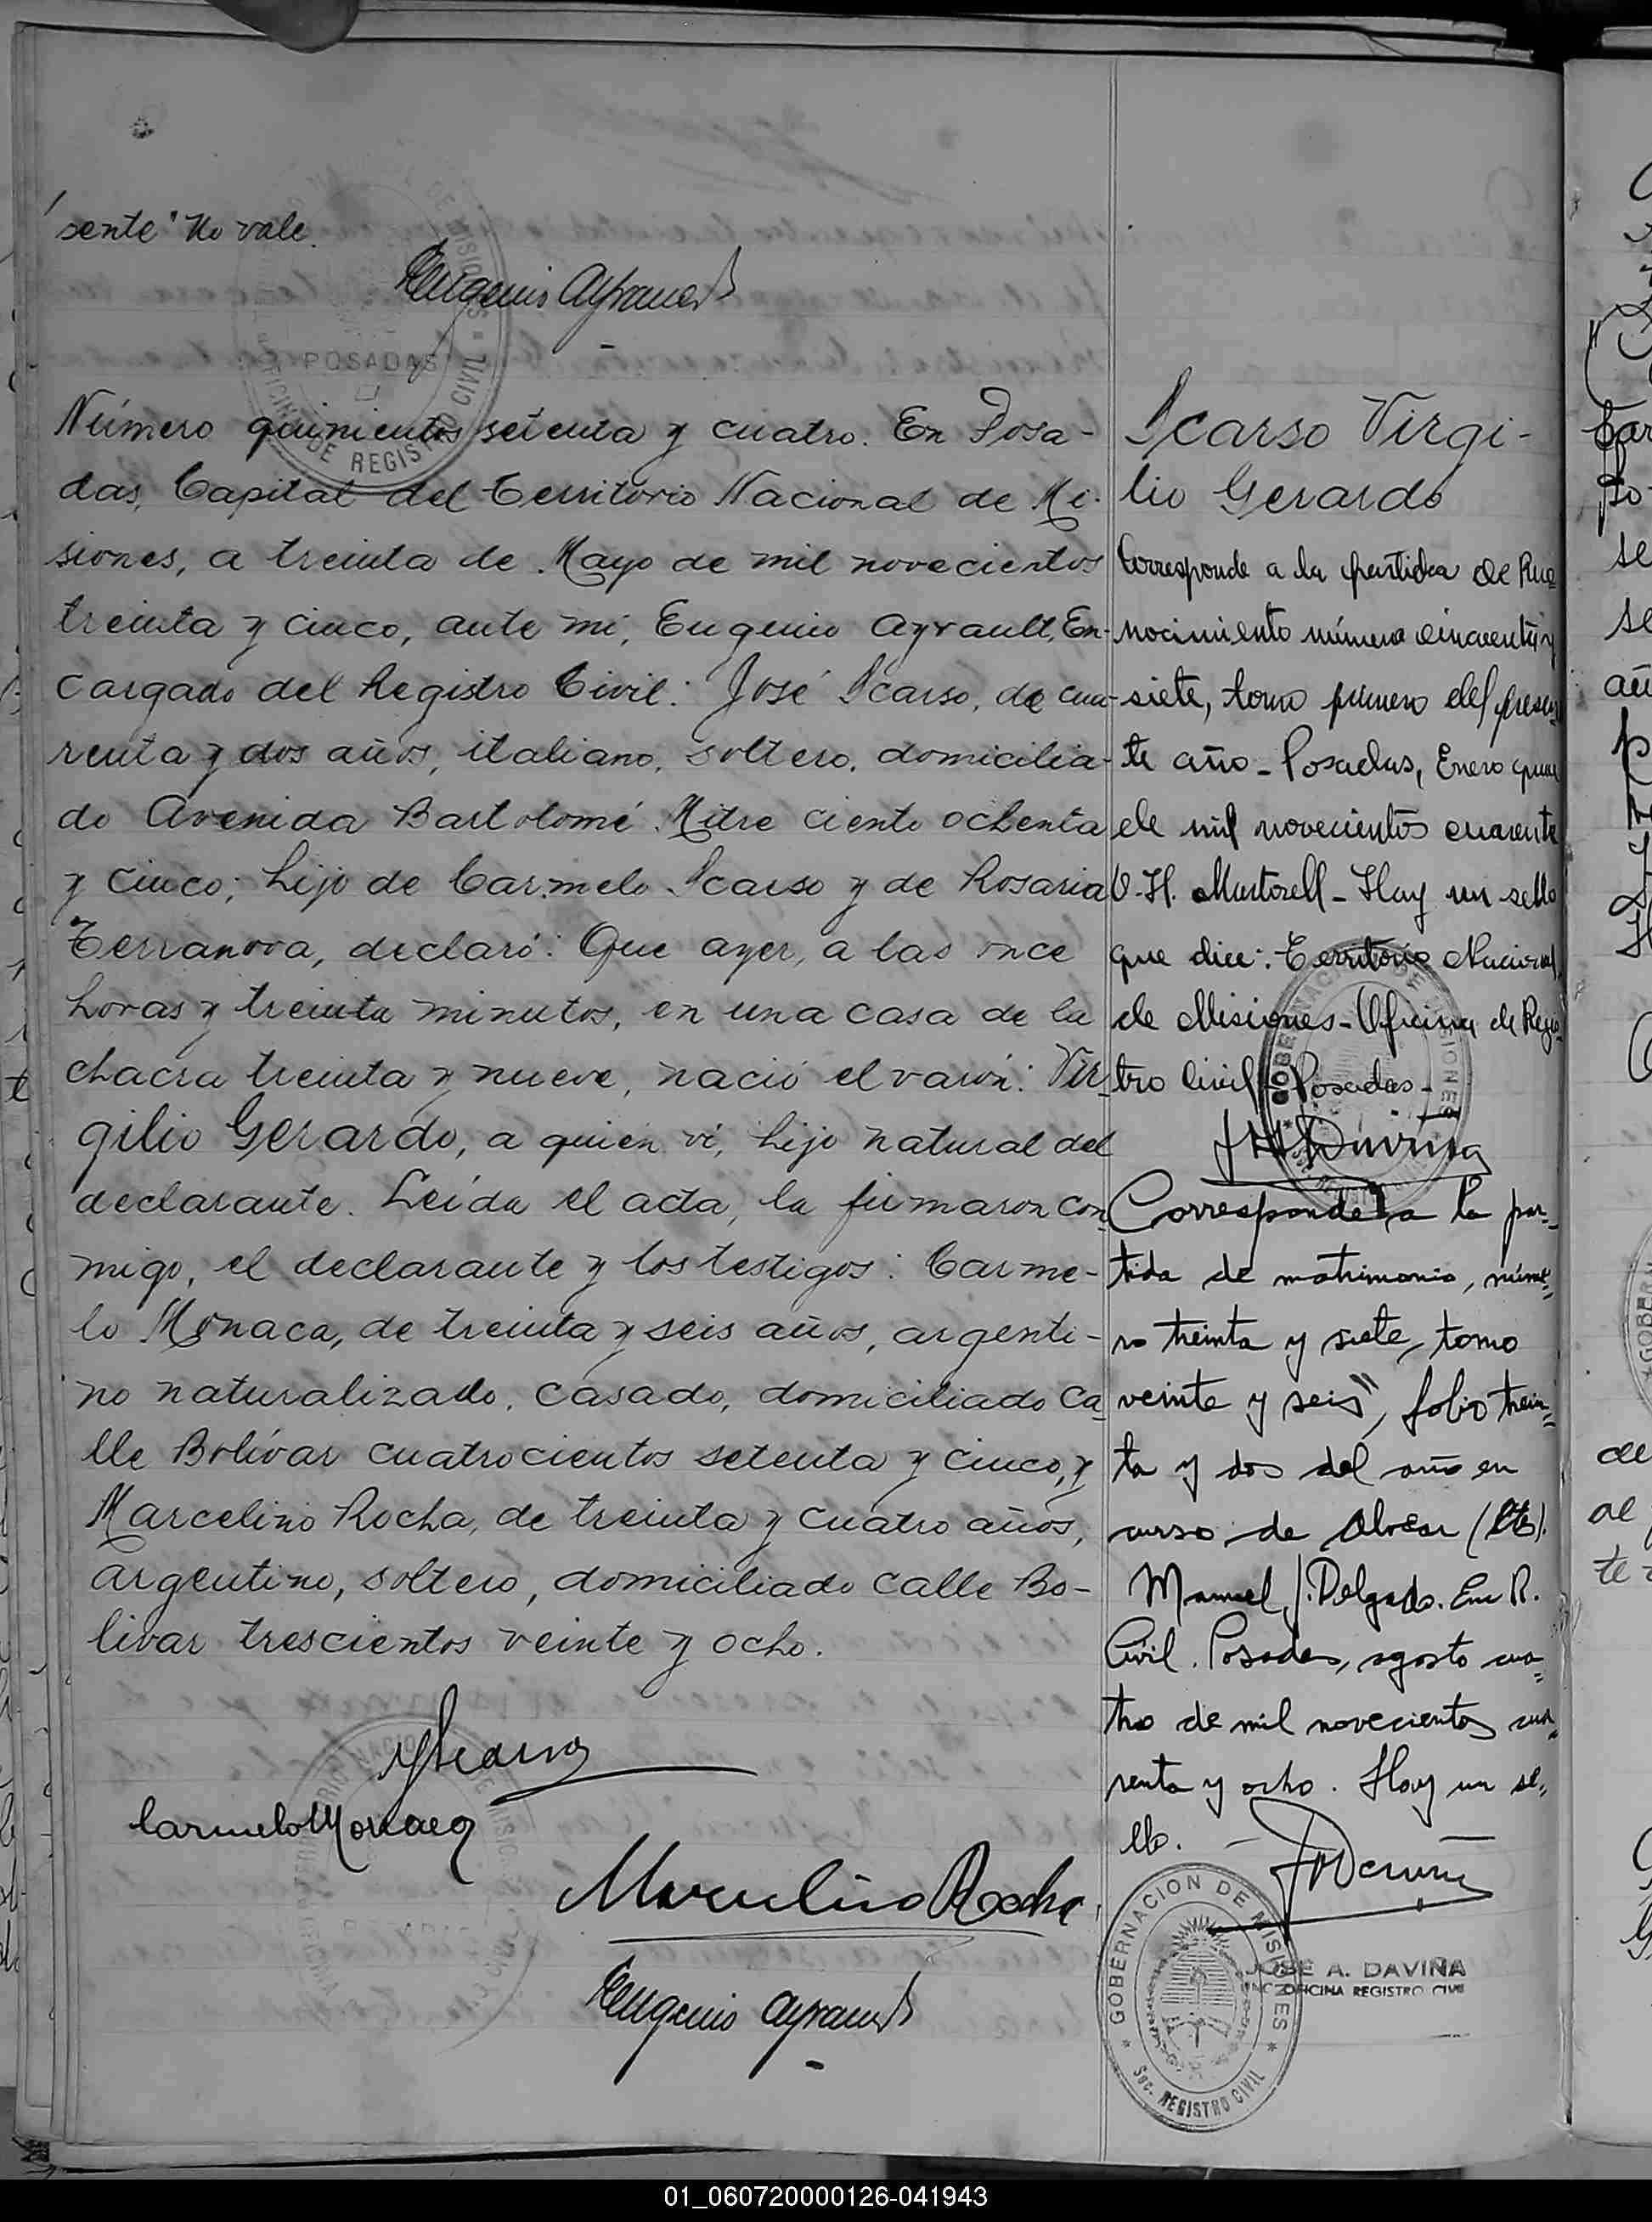 sente" No vale.
Eugenio Ayrault
POSADAS
OFICINA DE REGISTRO CIVIL
Número quinientos setenta y cuatro. En Posa-
das, Capital del Territorio Nacional de Mi-
siones, a treinta de Mayo de mil novecientos
treinta y cinco, ante mí, Eugenio Ayrault, En-
cargado del Registro Civil: José Scarso, de cua-
renta y dos años, italiano, soltero, domicilia-
do Avenida Bartolomé Mitre ciento ochenta
y cinco; hijo de Carmelo Scarso y de Rosaria
Terranova, declaró: Que ayer, a las once
horas y treinta minutos, en una casa de la
chacra treinta y nueve, nació el varón: Vir-
gilio Gerardo, a quien ví, hijo natural del
declarante. Leída el acta, la firmaron con-
migo, el declarante y los testigos: Carme-
lo Mónaca, de treinta y seis años, argenti-
no naturalizado, casado, domiciliado ca-
lle Bolívar cuatrocientos setenta y cinco, y
Marcelino Rocha, de treinta y cuatro años,
argentino, soltero, domiciliado calle Bo-
livar trescientos veinte y ocho.
JScarso
Carmelo Monaca
Marcelino Rocha
Eugenio Ayrault
Scarso Virgi-
lio Gerardo
Corresponde a la partida de Reco
nocimiento número cincuenta y
siete, tomo primero del presen
te año - Posadas, Enero
de mil novecientos cuarenta
V. H. Martorell - Hay un sello
que dice: Territorio Nacional
de Misiones - Oficina de Regis
tro Civil - Posadas -
Corresponde a la par-
tida de matrimonio, núme-
ro treinta y siete, tomo
veinte y seis, folio trein-
ta y dos del año en
curso de Alvear
Manuel J. Delgado. Enc R.
Civil. Posadas, agosto cua-
tro de mil novecientos cua-
renta y ocho. Hay un se-
llo.
GOBERNACION DE MISIONES
Sec. REGISTRO CIVIL
JOSE A. DAVIÑA
ENC. OFICINA REGISTRO CIVIL
01_060720000126-041943